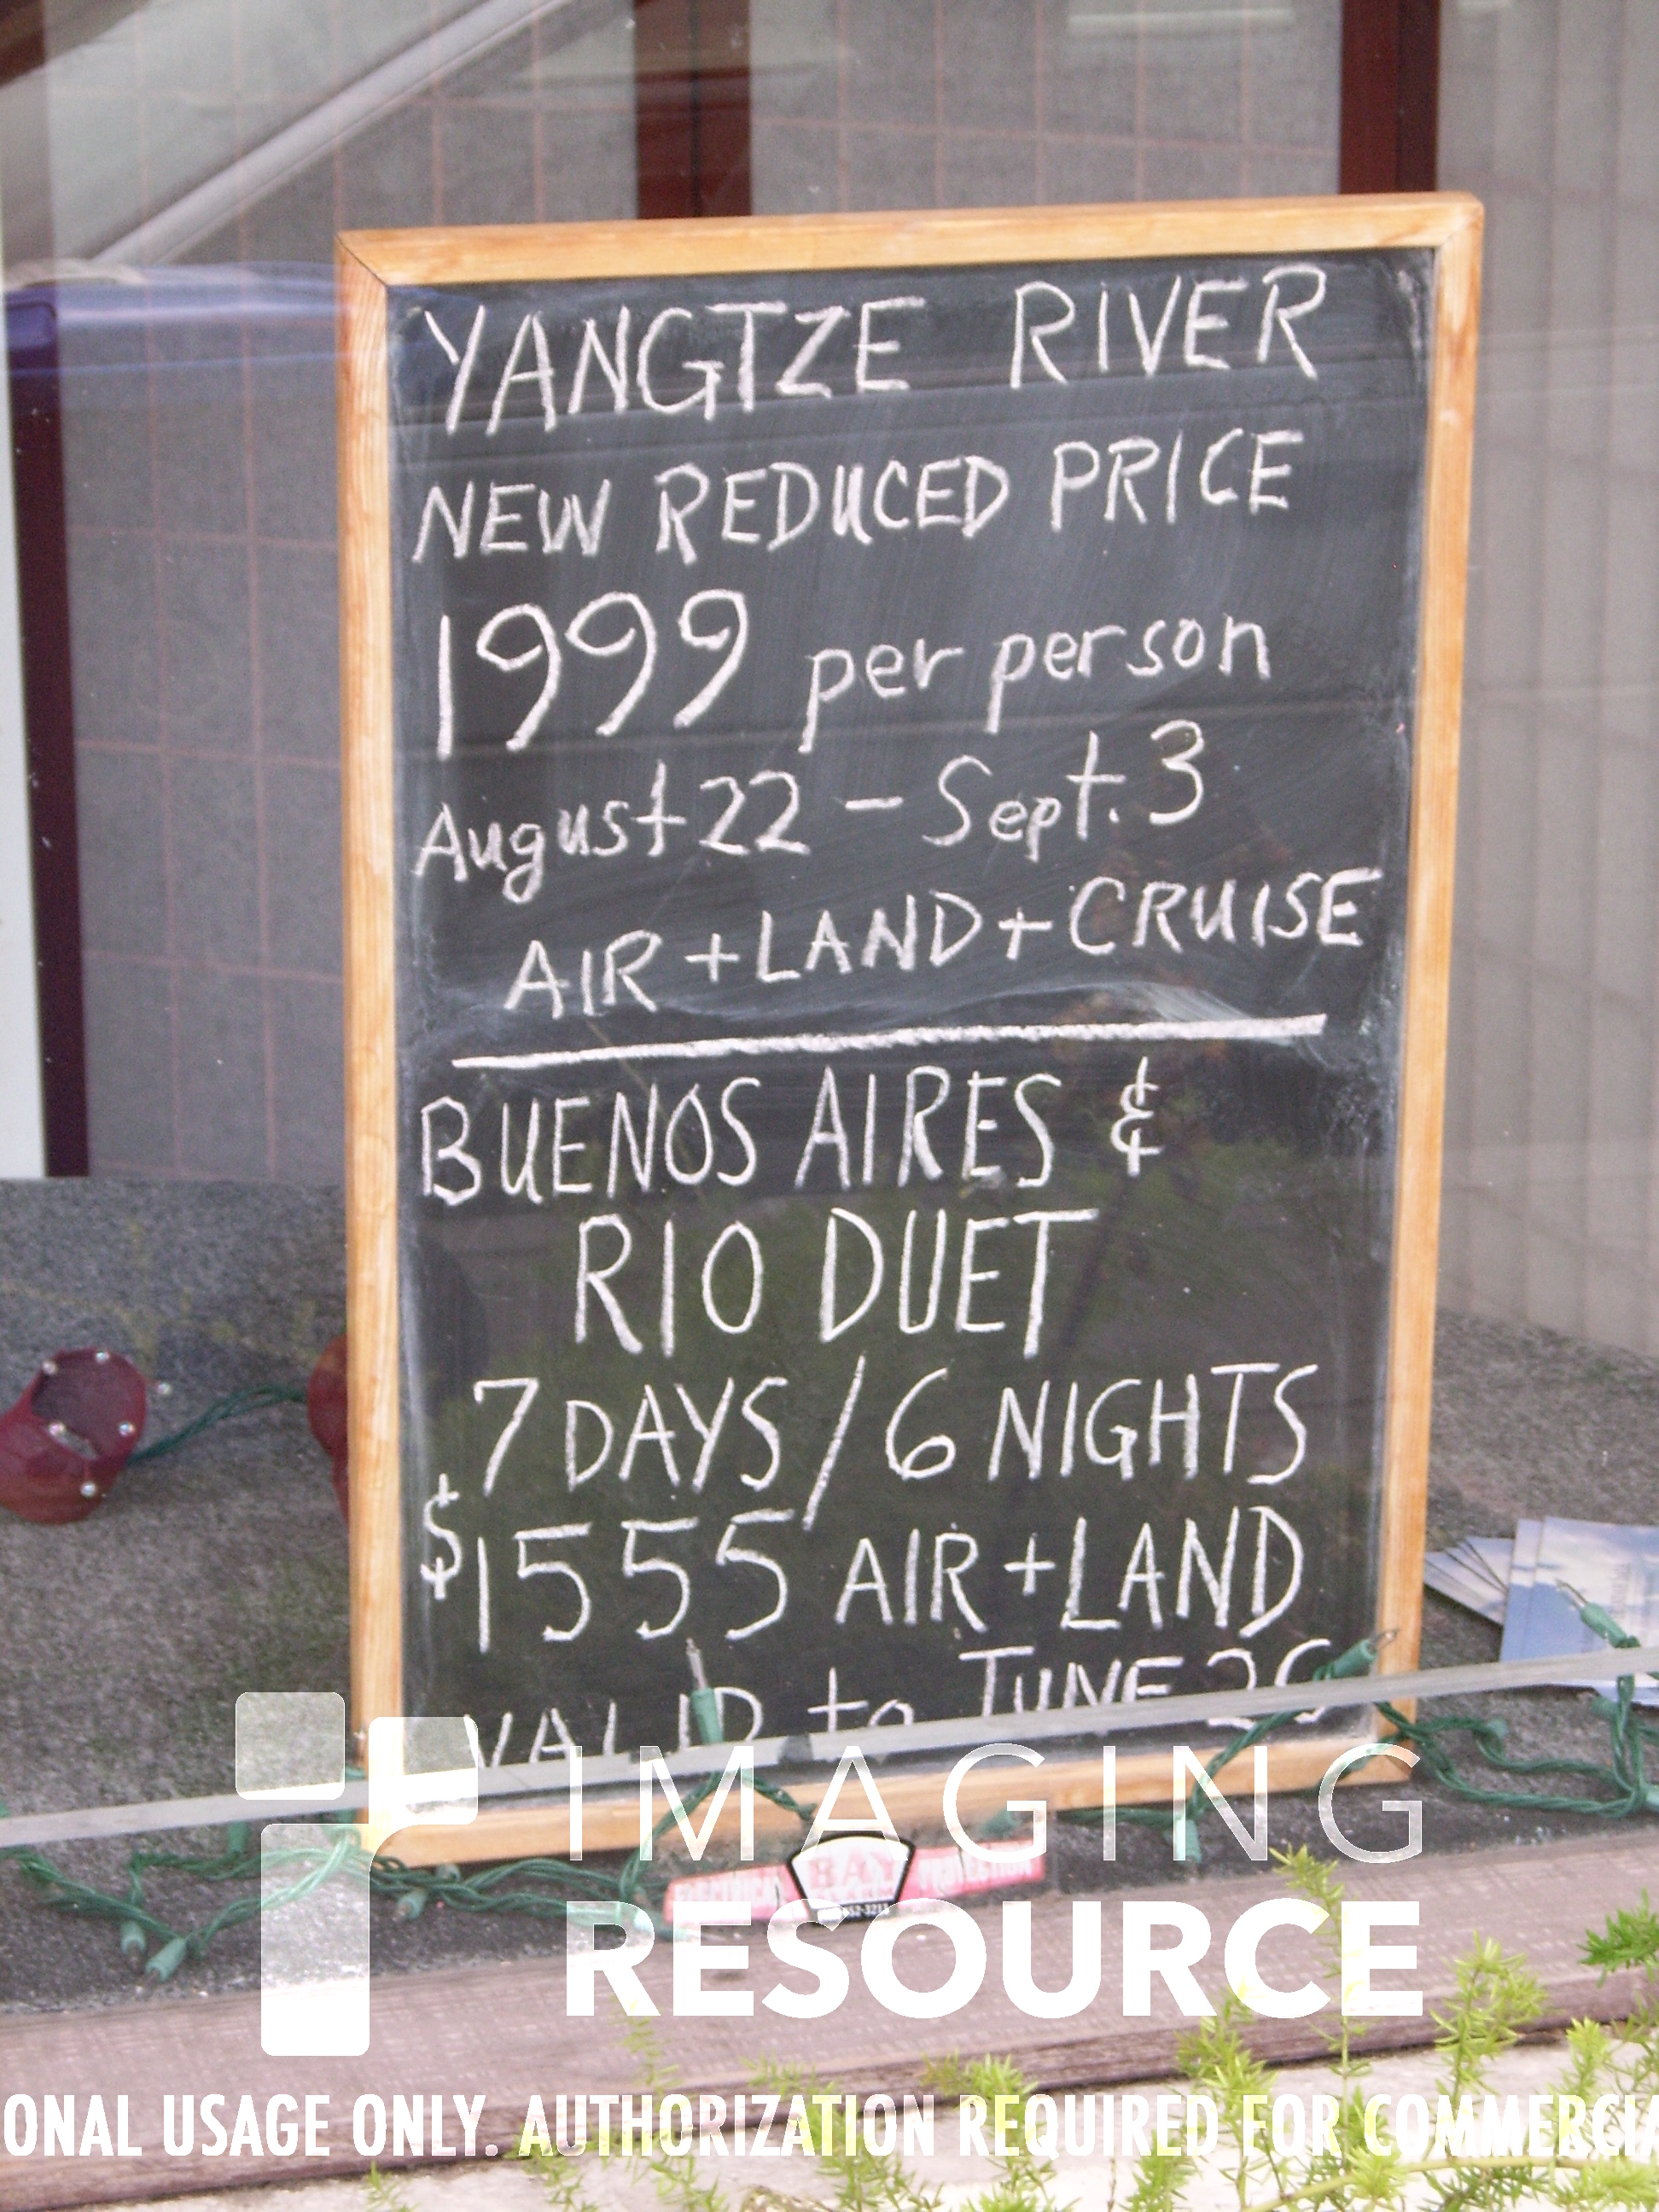 YANGTZE RIVER
NEW REDUCED PRICE
1999 per person
August 22 - Sept. 3
AIR + LAND + CRUISE
BUENOS AIRES &
RIO DUET
7 DAYS / 6 NIGHTS
$1555 AIR + LAND
VALID to JUNE
BAY
IMAGING
RESOURCE
ONAL USAGE ONLY. AUTHORIZATION REQUIRED FOR COMMERCIA